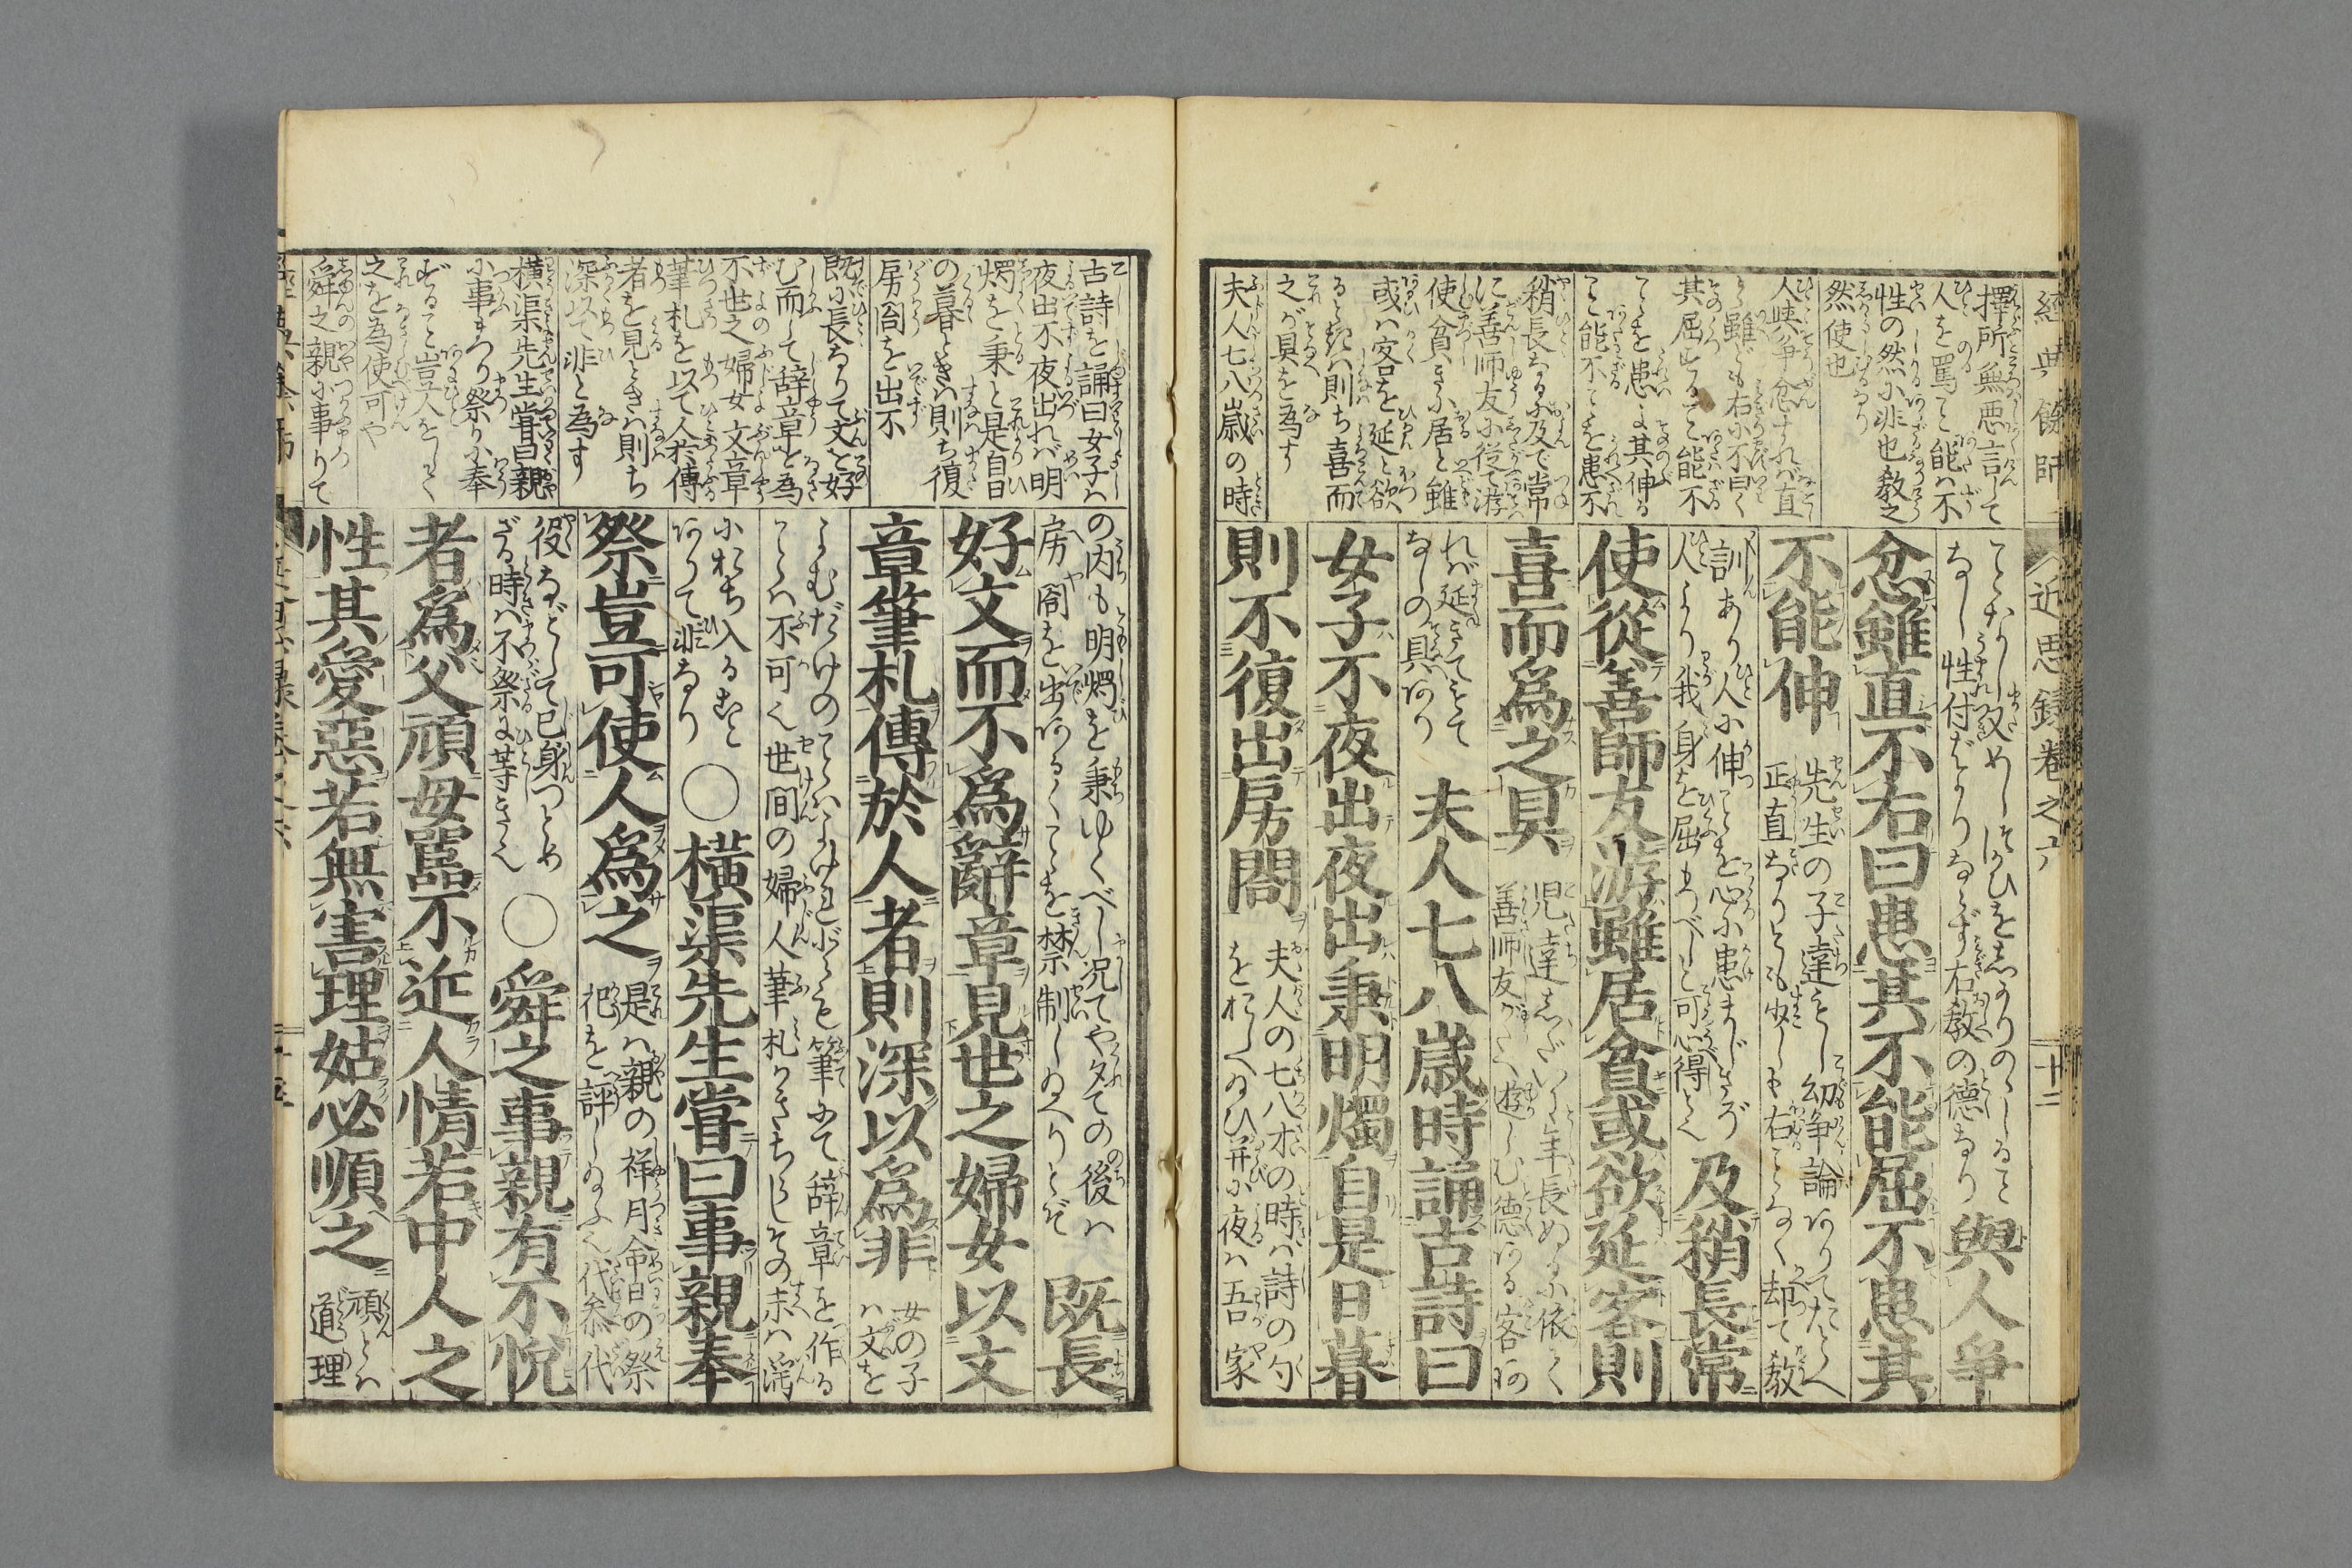 經典餘師
近思録巻之六
十二
擇所無悪言して
人を罵こと能ハ不
性の然に非也教之
然使也
人與争忿すれバ直
と雖ども右に不曰く
其屈すること能不
ことを患よ其伸る
こと能不ことを患不
稍長なるに及で常
に善师友に従て游
使貧きに居と雖
或ハ客を延と欲
るときハ則ち喜而
之が具を為す
夫人七八歳の時
與人爭
忿雖直不右曰患其不能屈不患其
不能伸
先生の子達をし幼争論ありてたとへ
正直なりとも少しも右ことなく却て教
訓あり人に伸ことを心に患まじきぞ
人より我身を屈すべしと可心得と也
及稍長常
使從善師友游雖居貧或欲延客則
喜而爲之具
れバ延きてをて
なしの具あり
夫人七八歳時誦古詩曰
女子不夜出夜出秉明燭自是日暮
則不復出房閤
夫人の七八才の時ハ詩の勺
をおしへ玉ひ并に夜ハ吾家
古詩を誦曰女子ハ
夜出不夜出れバ明
燭を秉と是自日
の暮ときハ則ち復
房閤を出不
既に長なりて文を好
む而して辞章を為
不世之婦女文章
筆札を以て人於傳
者を見ときハ則ち
深以て非と為す
横渠先生嘗曰親
に事まつり祭りに奉
ずること豈人をして
之を為使可や
舜之親に事りて
の内も明燭を秉ゆくべし况てや夕ての後ハ
房閤を出あるくことを禁制し玉へりとぞ
既長
好文而不爲辭章見世之婦女以文
章筆札傳於人者則深以爲非
女の子
ハ文を
こと不可也世間の婦人筆札かきちらしその末ハ淫
におち入るもと
ありて非なり
○横渠先生嘗曰事親奉
祭豈可使人爲之
是ハ親の祥月命日の祭
祀を評し玉ふ也代参代
役などして已身つとめ
ざる時ハ不祭よ等き也
○舜之事親有不悦
者爲父頑母嚚不近人情若中人之
性其愛惡若無害理姑必順之
頑とハ
道理